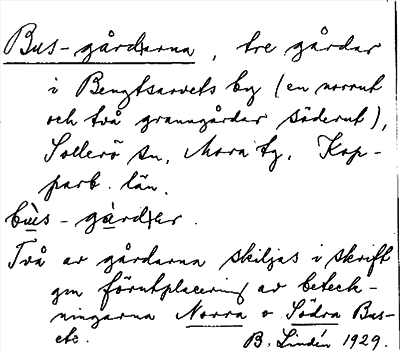 Bus-gård(arna, tre gårdar
i Bengtsarvets by (en norrut
och två granngårdar söderut),
Sollerö sn, Mora tg, Kop-
parb. län.
bùs-gàrd)er.
Två av gårdarna skiljas i skrift
gm förutplacering av beteck-
ningarna Norra o Södra Bus-
etc. B. Lindén 1929.